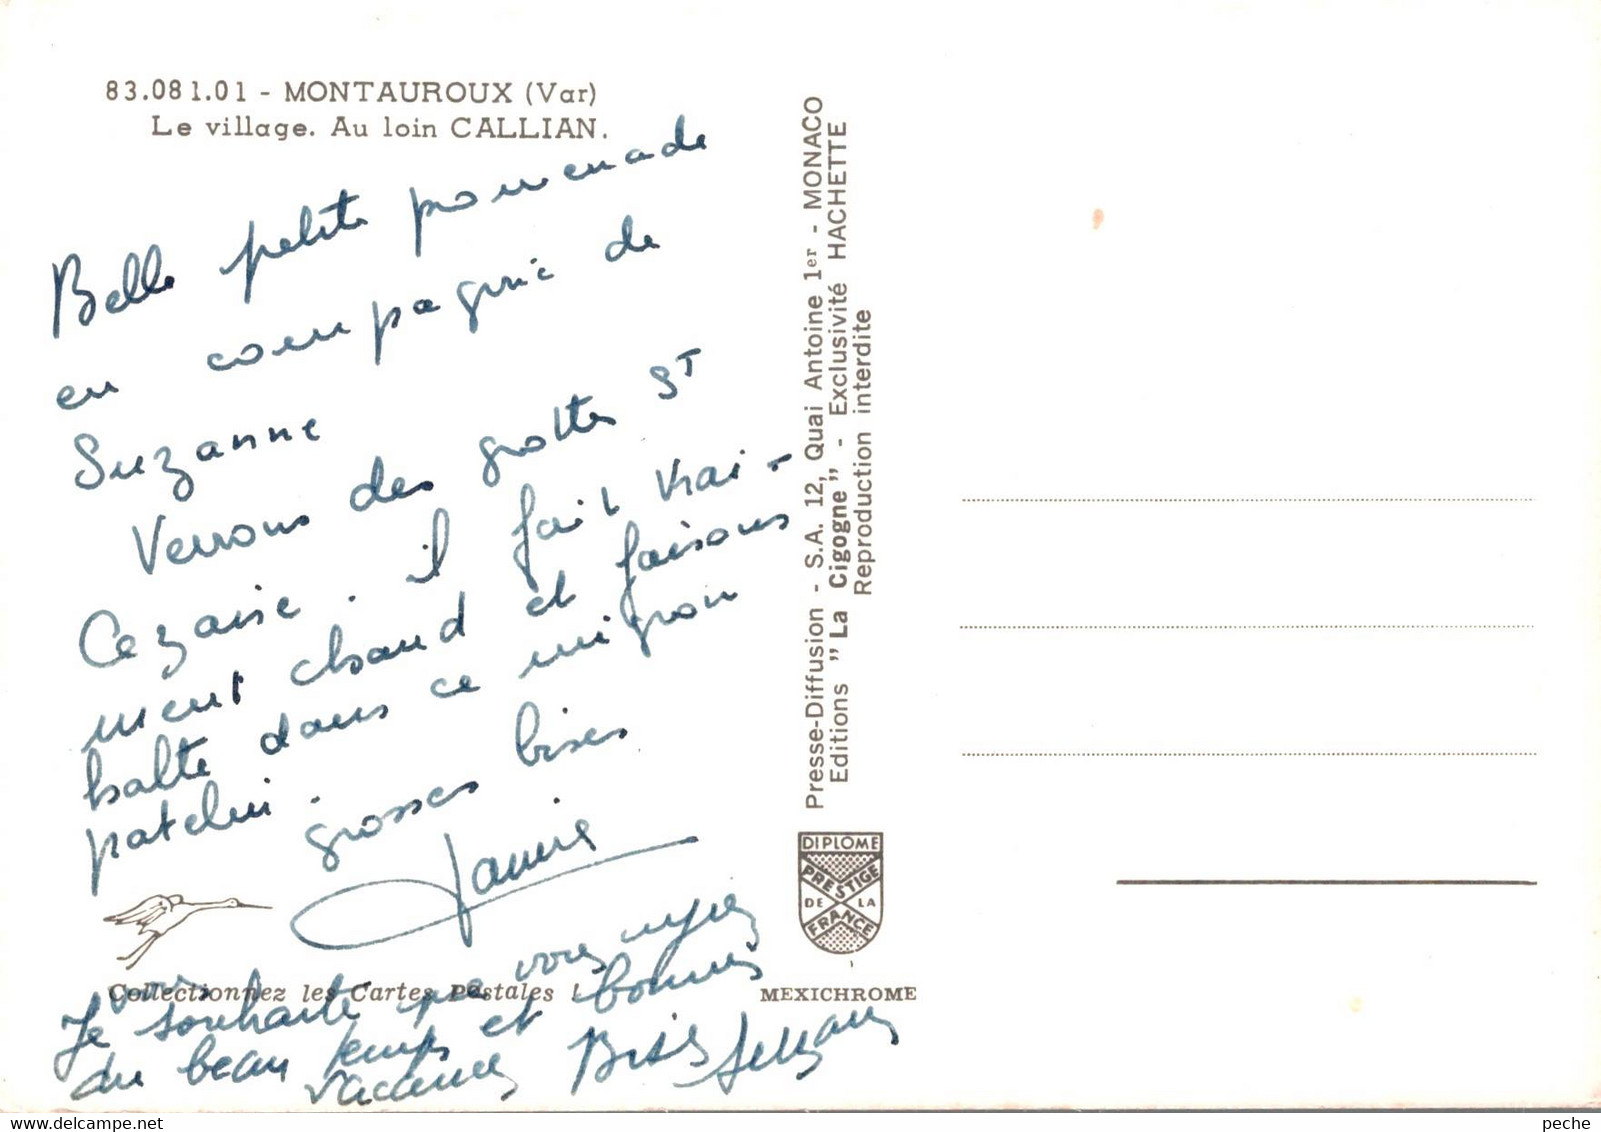 83.081.01 - MONTAUROUX (Var)
Le village. Au loin CALLIAN.
Belle petite promenade
en compagnie de
Suzanne
Verrons des grottes ST
Cezaire. il fait vrai-
ment chaud et faisons
halte dans ce mignon
patelin.
grosses bises
Janine
Collectionnez les Cartes Postales !
Je vous souhaite que vous ayez
du beau temps et bonnes
vacances Bises Suzanne
Presse-Diffusion - S.A. 12, Quai Antoine 1er - MONACO
Editions " La Cigogne " - Exclusivité HACHETTE
Reproduction interdite
DIPLOME
PRESTIGE
DE LA
FRANCE
MEXICHROME
delcampe.net
peche